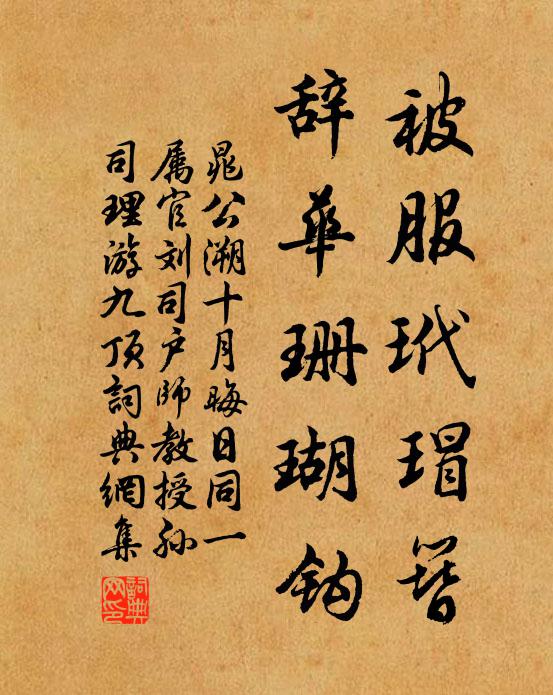 被服玳瑁簪
辞华珊瑚钩
晁公溯十月晦日同一
属官刘司户师教授孙
司理游九顶詞典網集
詞典網印